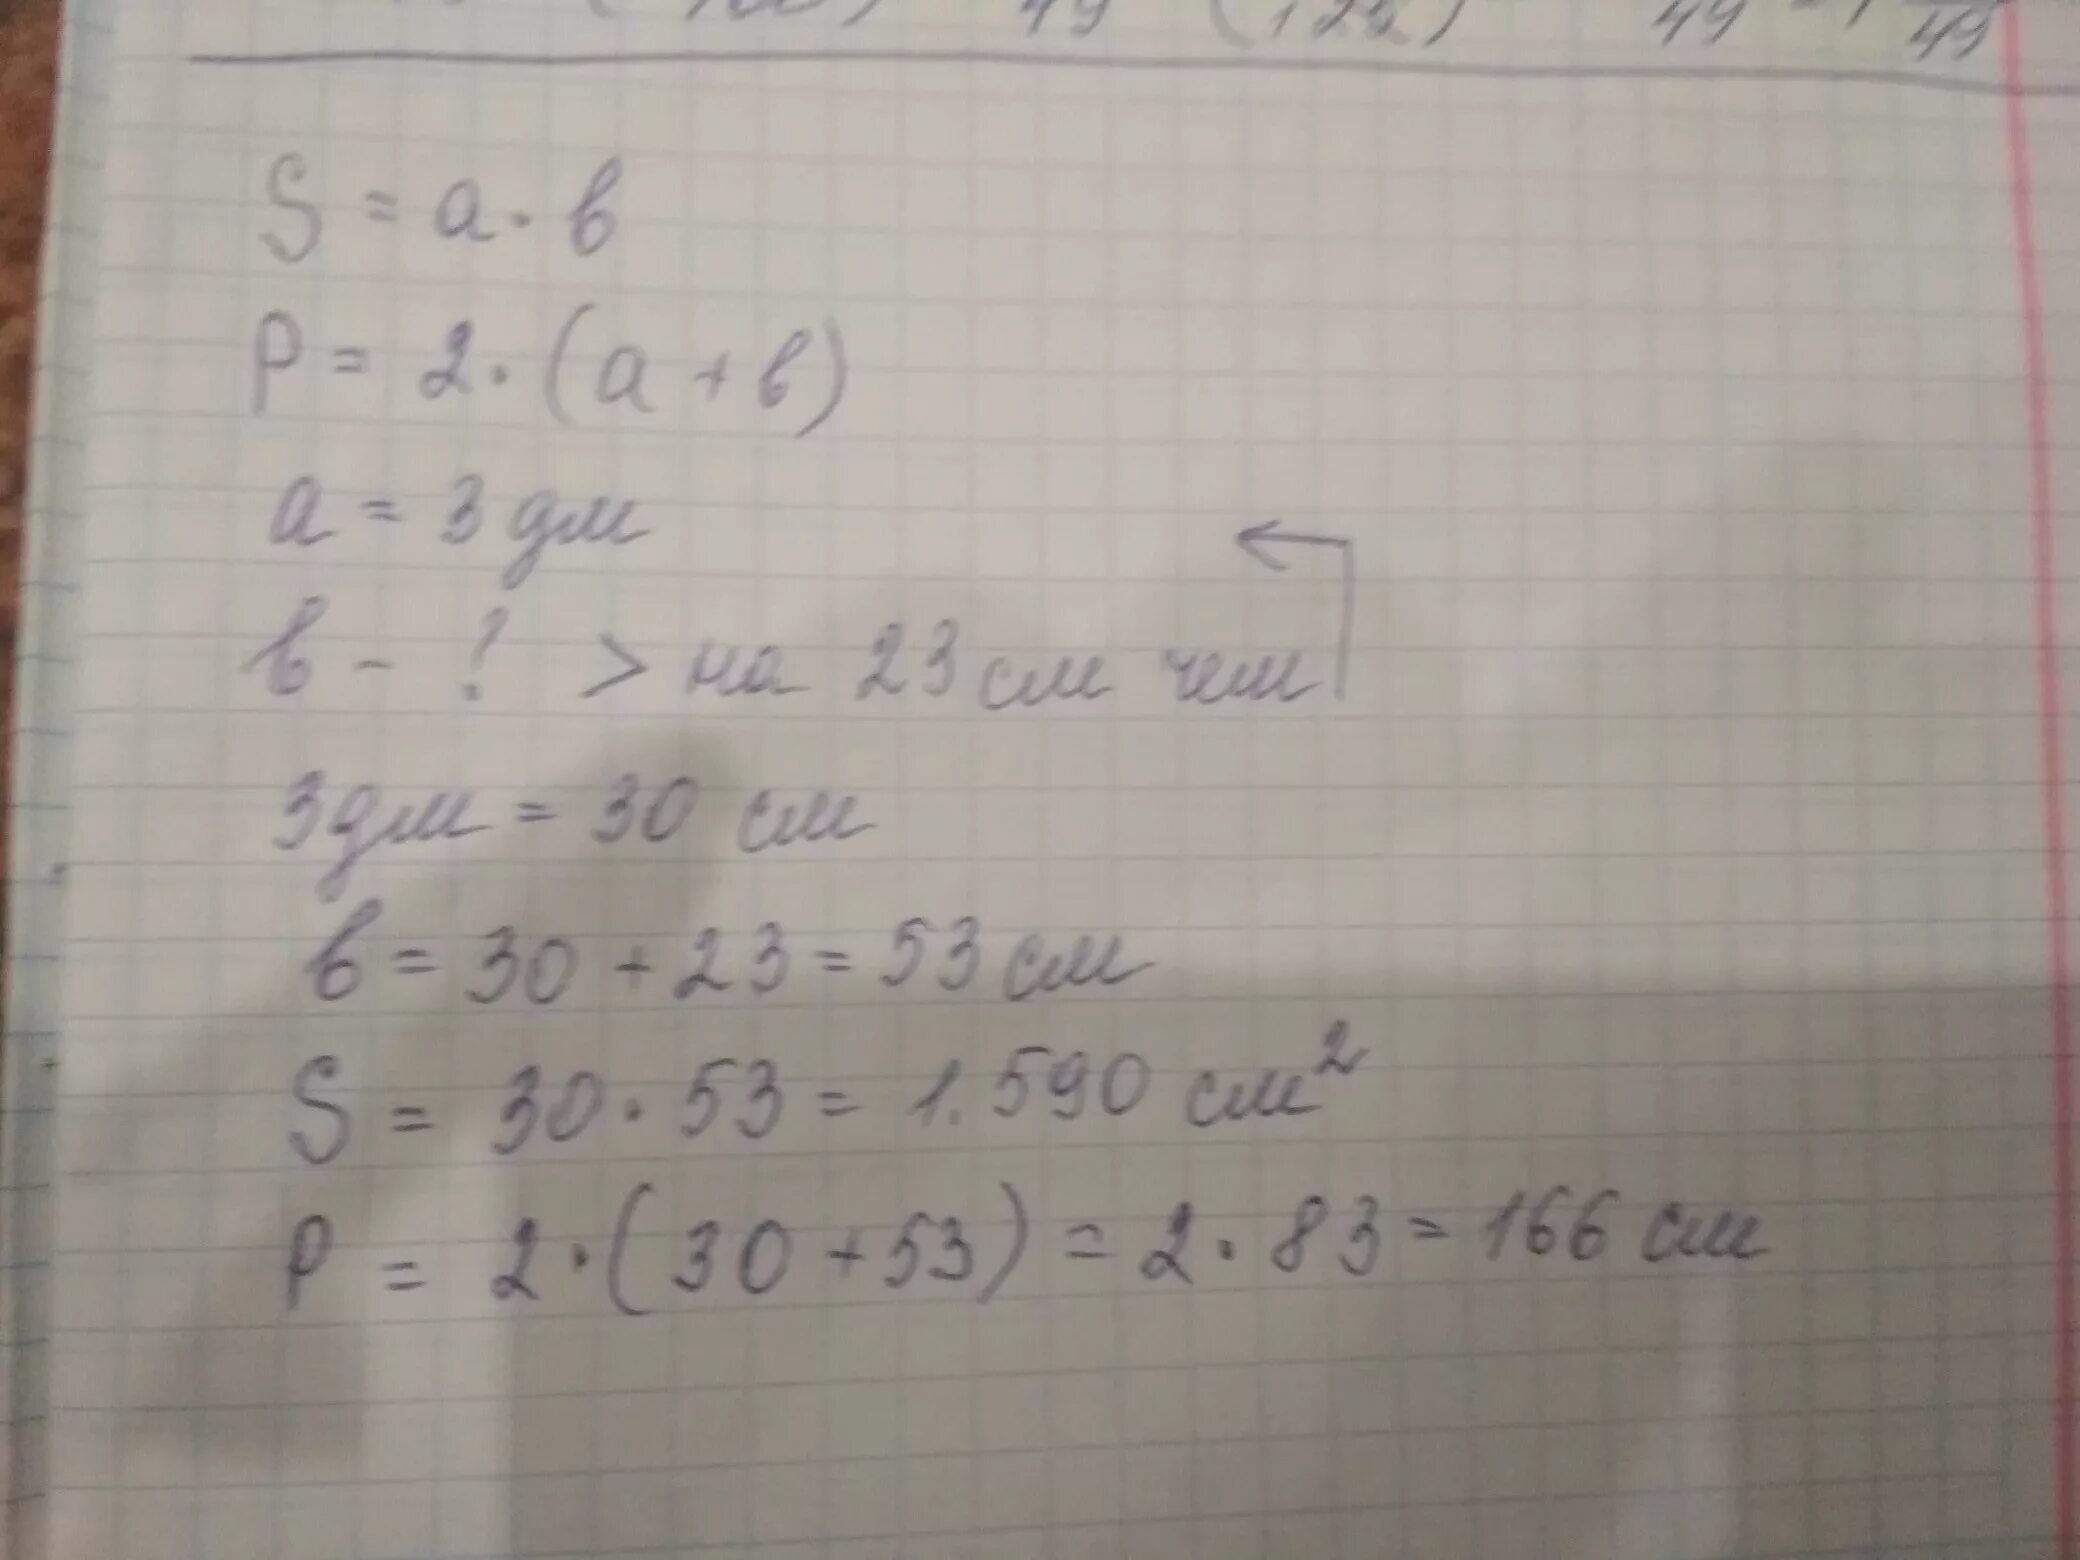 49 (122) 49 49
S = a · b
P = 2 · (a + b)
a = 3 дм
b - ? > на 23 см чем
3 дм = 30 см
b = 30 + 23 = 53 см
S = 30 · 53 = 1.590 см²
P = 2 · (30 + 53) = 2 · 83 = 166 см